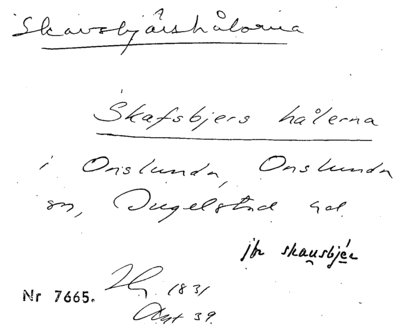 Skavsbjärshålorna
Skafsbjers hålerna
i Onslunda, Onslunda
sn, Ingelstad hd.
jfr skausbjér
Nr 7665. 1831
Akt 39